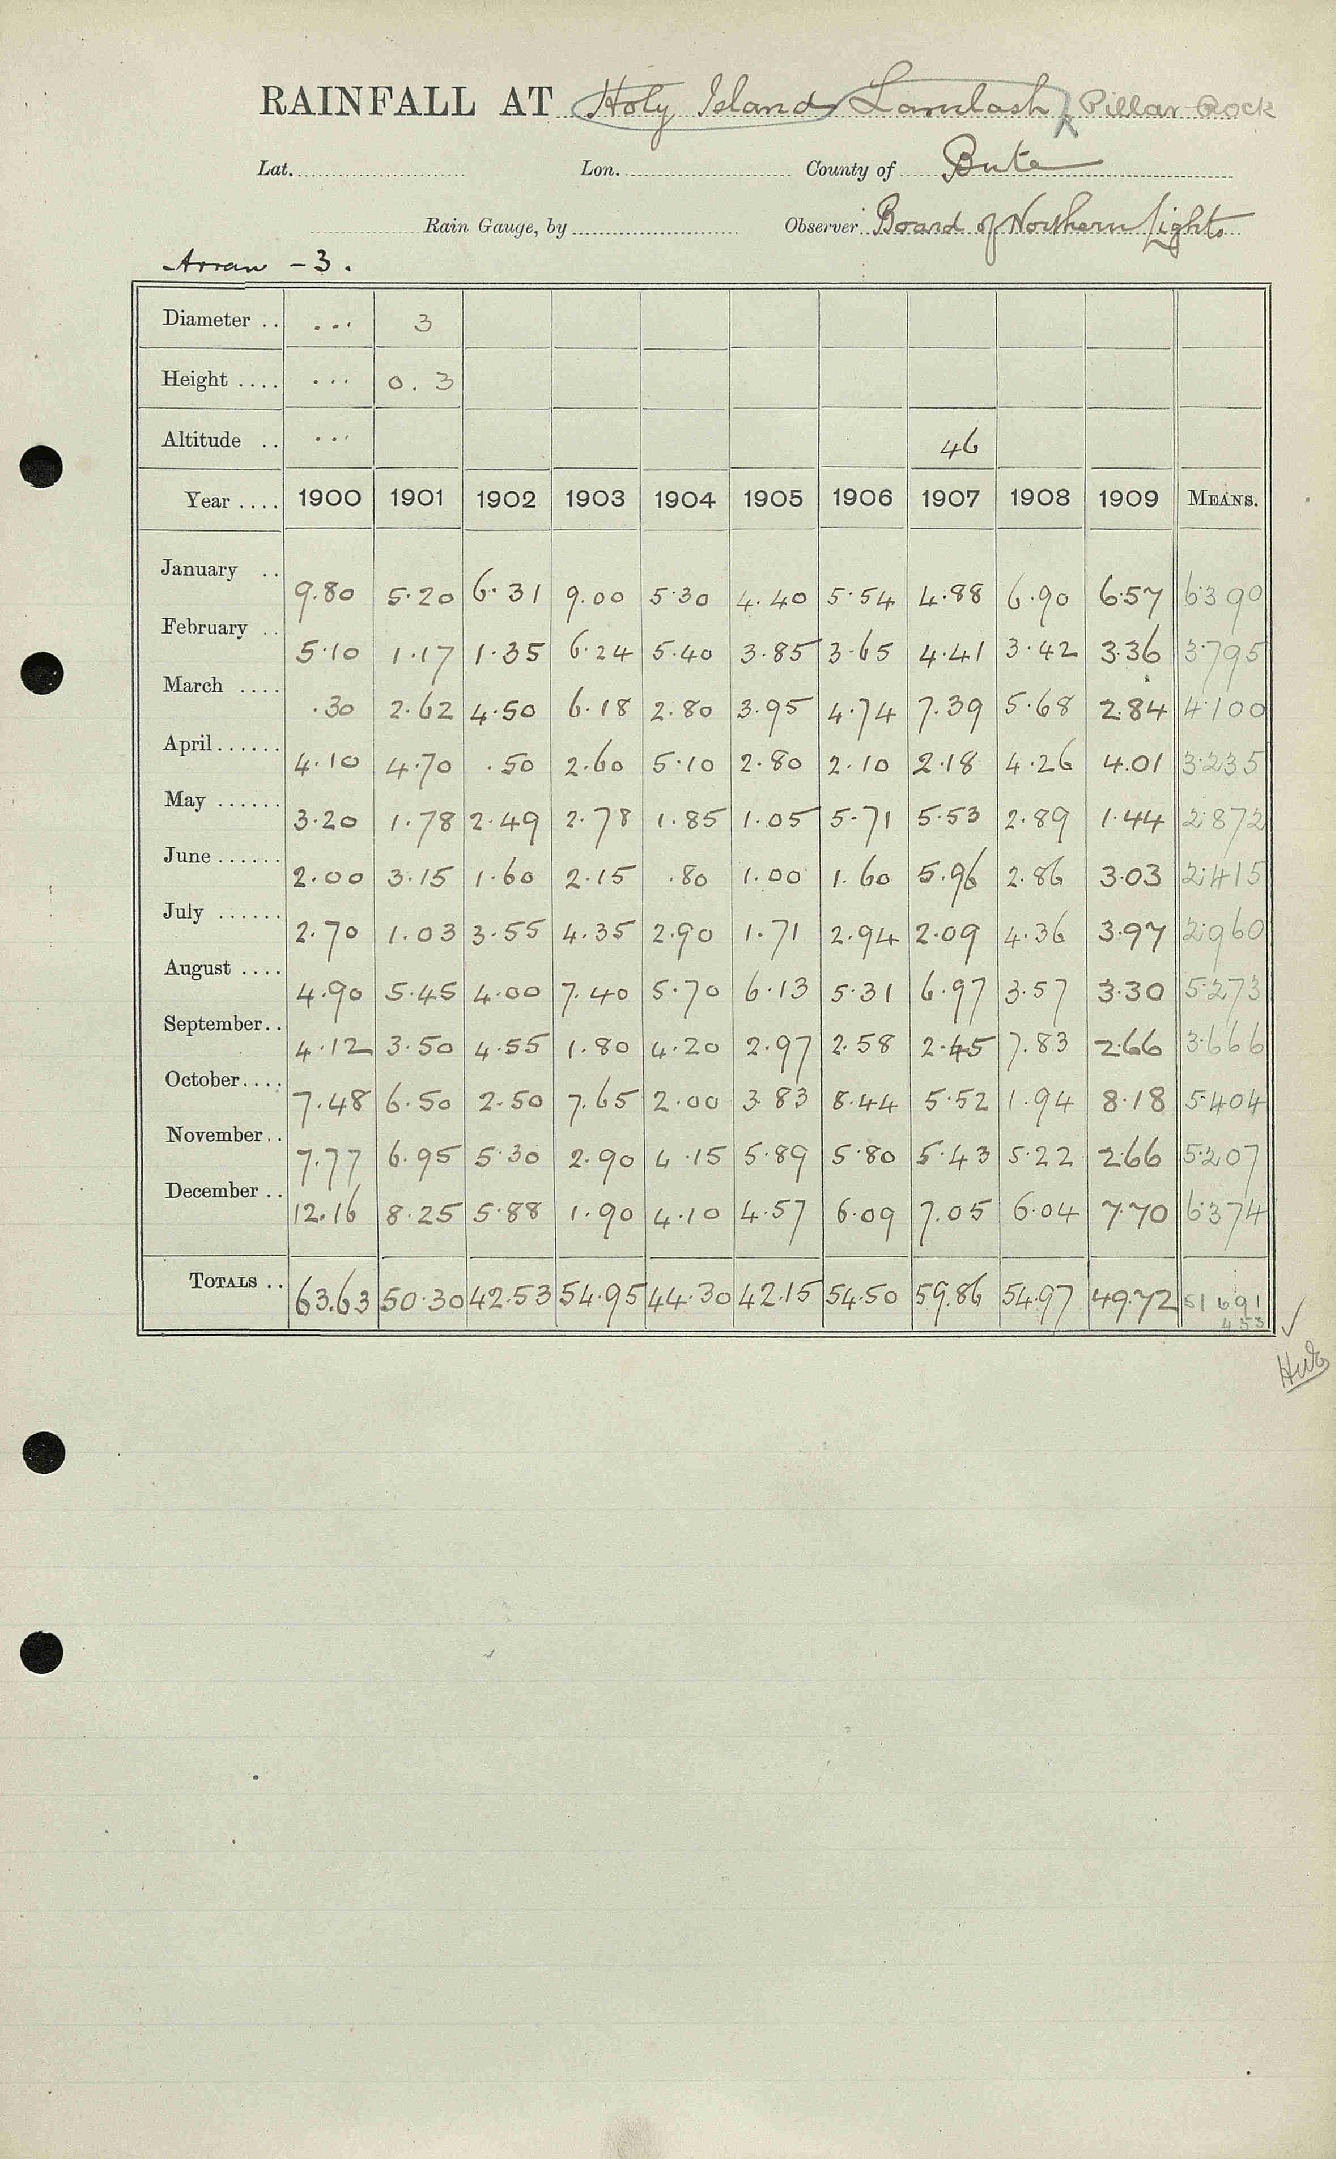 RAINFALL AT Holy Island Lamlash Pillar Rock
Lat. Lon. County of Bute
Rain Gauge, by Observer Board of Northern Lights
Arran - 3.
Diameter .. ... 3
Height .... ... 0.3
Altitude .. ... 46
Year .... 1900 1901 1902 1903 1904 1905 1906 1907 1908 1909 MEANS.
January .. 9.80 5.20 6.31 9.00 5.30 4.40 5.54 4.88 6.90 6.57 6.390
February .. 5.10 1.17 1.35 6.24 5.40 3.85 3.65 4.41 3.42 3.36 3.795
March .... .30 2.62 4.50 6.18 2.80 3.95 4.74 7.39 5.68 2.84 4.100
April...... 4.10 4.70 .50 2.60 5.10 2.80 2.10 2.18 4.26 4.01 3.235
May ...... 3.20 1.78 2.49 2.78 1.85 1.05 5.71 5.53 2.89 1.44 2.872
June ...... 2.00 3.15 1.60 2.15 .80 1.00 1.60 5.96 2.86 3.03 2.415
July ...... 2.70 1.03 3.55 4.35 2.90 1.71 2.94 2.09 4.36 3.97 2.960
August .... 4.90 5.45 4.00 7.40 5.70 6.13 5.31 6.97 3.57 3.30 5.273
September.. 4.12 3.50 4.55 1.80 4.20 2.97 2.58 2.45 7.83 2.66 3.666
October.... 7.48 6.50 2.50 7.65 2.00 3.83 8.44 5.52 1.94 8.18 5.404
November.. 7.77 6.95 5.30 2.90 4.15 5.89 5.80 5.43 5.22 2.66 5.207
December .. 12.16 8.25 5.88 1.90 4.10 4.57 6.09 7.05 6.04 7.70 6.374
TOTALS .. 63.63 50.30 42.53 54.95 44.30 42.15 54.50 59.86 54.97 49.72 51 691
453